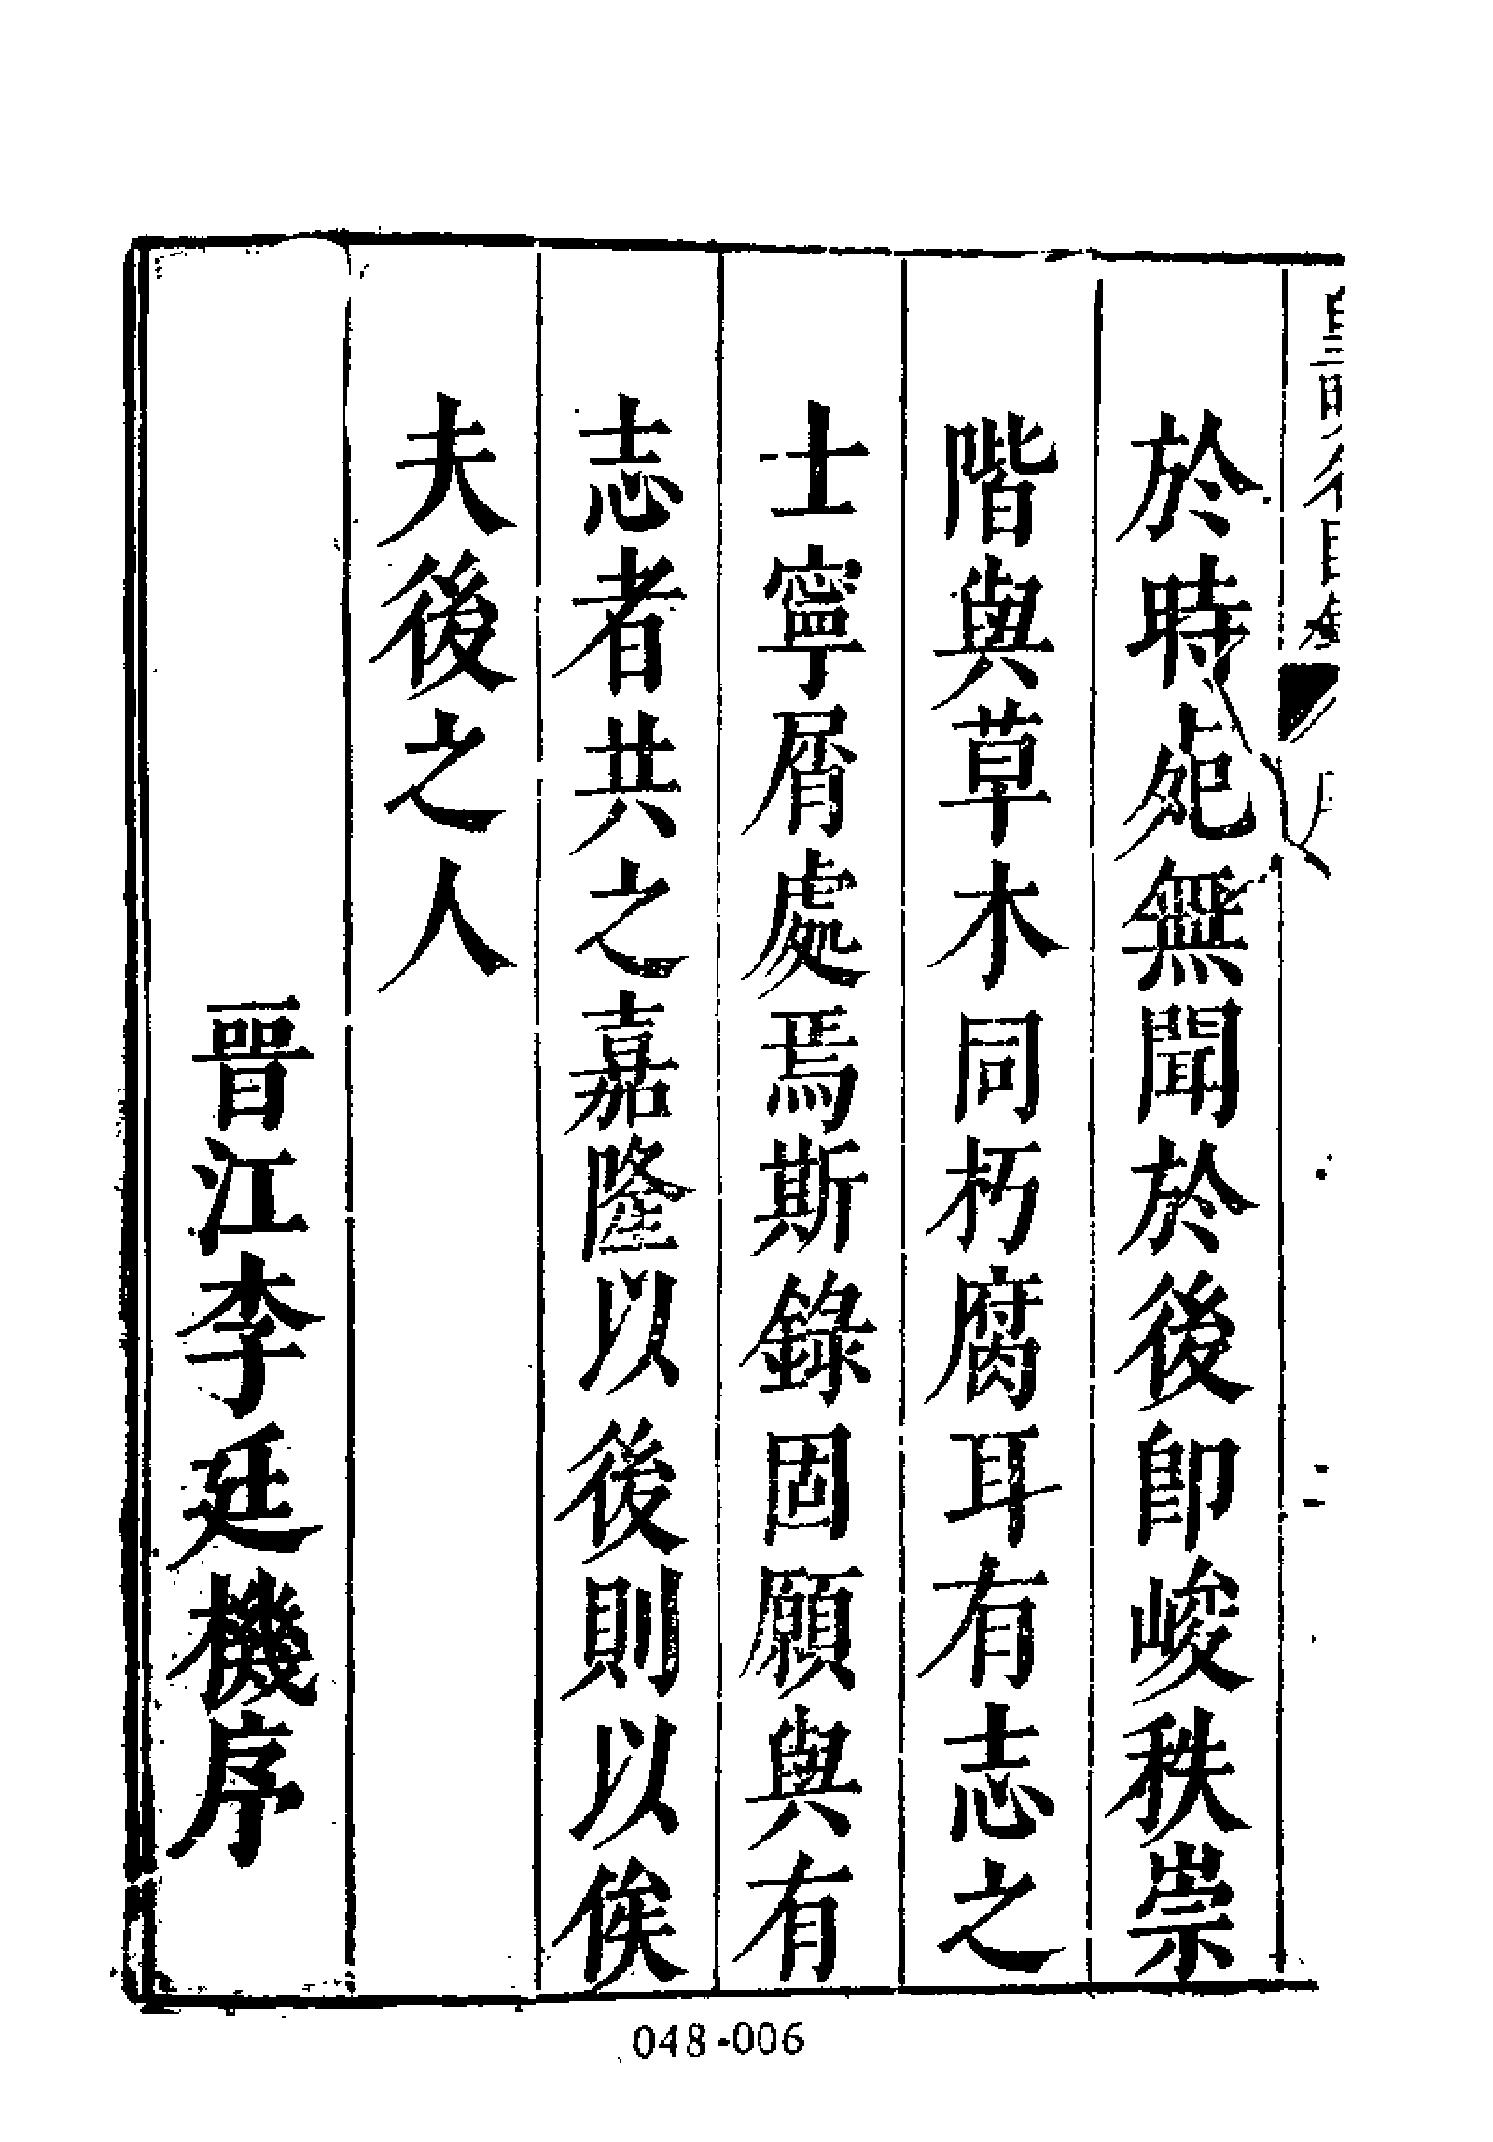 於時䒦無聞於後卽峻秩崇
階與草木同朽腐耳有志之
士寧屑處焉斯錄固願與有
志者共之嘉隆以後則以俟
夫後之人
晉江李廷機序
048-006